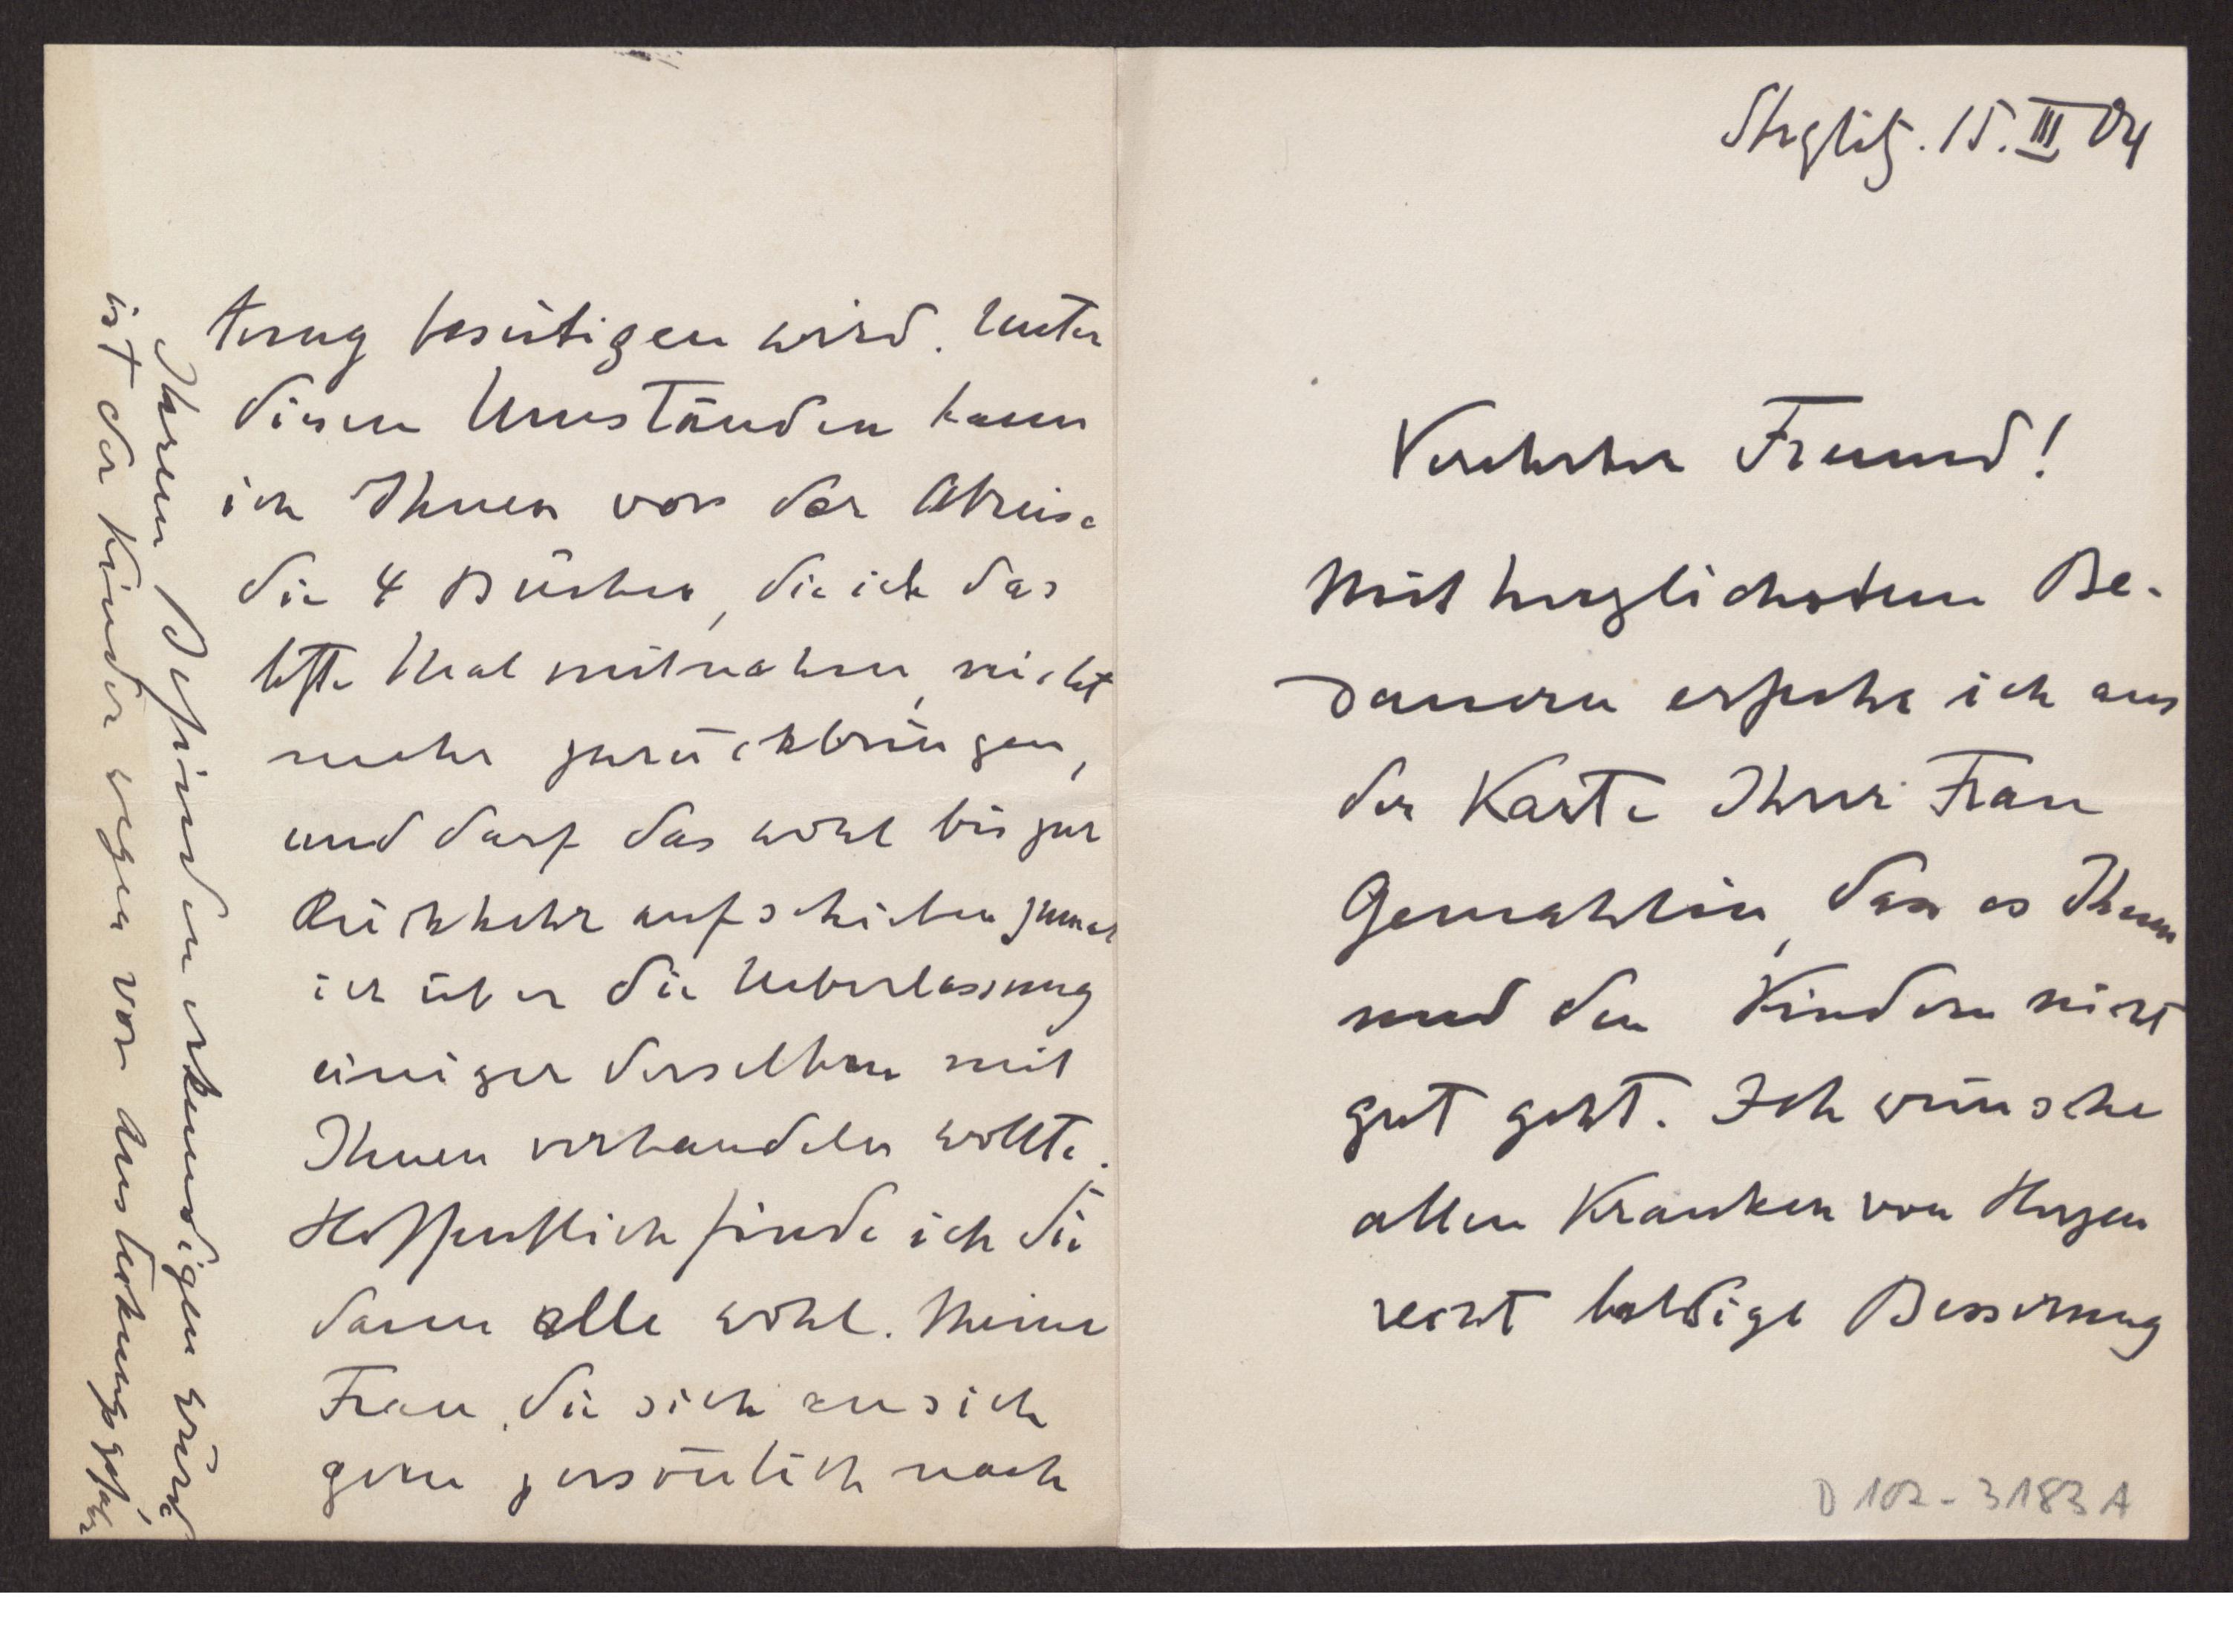 Steglitz. 15. III 04
Verehrter Freund!
Mit herzlichstem Be-
dauern erfahre ich aus
der Karte Ihrer Frau
Gemahlin, dass es Ihnen
und den Kindern nicht
gut geht. Ich wünsche
allen Kranken von Herzen
recht baldige Besserung
D 102-3183 A
beseitigen wird. Unter
diesen Umständen kann
ich Ihnen vor der Abreise
die 4 Bücher, die ich das
letzte Mal mitnahm, nicht
mehr zurückbringen,
und darf das wohl bis zur
Rückkehr aufschieben, zumal
ich über die Ueberlassung
einiger derselben mit
Ihnen verhandeln wollte.
Hoffentlich finde ich Sie
dann alle wohl. Meine
Frau, die sich an sich
gern persönlich nach
Ihrem Befinden erkundigen würde
ist der Kinder wegen vor Ansteckungsgefahr